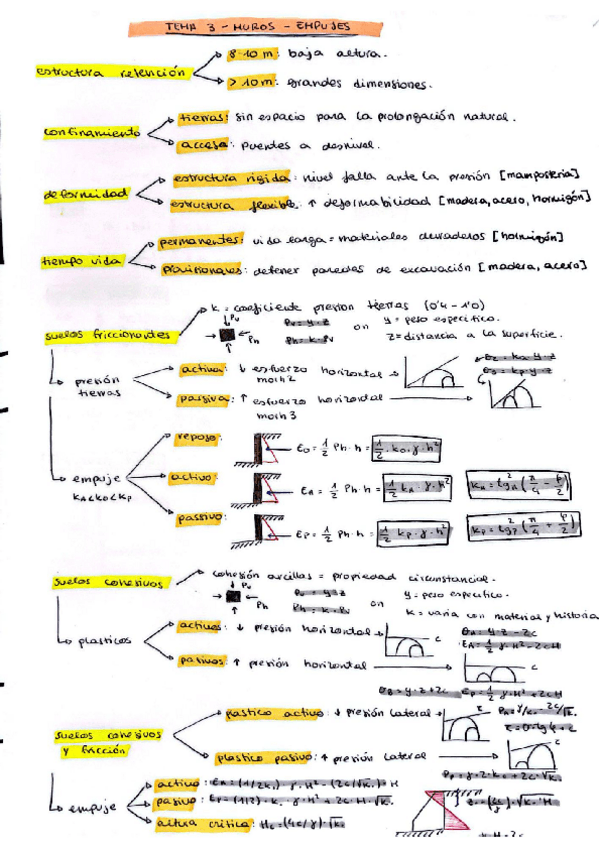 TEMA 3 - MUROS - EMPUJES
estructura retención
8-10 m: baja altura.
> 10 m: grandes dimensiones.
confinamiento
tierras: sin espacio para la prolongación natural.
acceso: puentes a desnivel.
deformidad
estructura rígida: nivel falla ante la presión [mampostería]
estructura flexible: ↑ deformabilidad [madera, acero, hormigón]
tiempo vida
permanentes: vida larga = materiales duraderos [hormigón]
provisionales: detener paredes de excavación [madera, acero]
suelos friccionantes
k = coeficiente presión tierras (0'4 - 1'0)
Pv
Ph
Pv = γ·z
Ph = k·Pv
γ = peso específico.
z = distancia a la superficie.
presión tierras
activa: ↓ esfuerzo horizontal
mohr 2
pasiva: ↑ esfuerzo horizontal
mohr 3
empuje
KA<K0<KP
reposo:
E0 = 1/2 Ph·h = 1/2·k0·γ·h²
activo:
EA = 1/2 Ph·h = 1/2 kA·γ·h²
pasivo:
EP = 1/2 Ph·h = 1/2 kP·γ·h²
suelos cohesivos
cohesión arcillas = propiedad circunstancial.
Pv
Ph
Ph = k·Pv
γ = peso específico.
k = varía con material y historia
plásticos
activos: ↓ presión horizontal
c
EA = 1/2 γ·H² - 2cH
pasivos: ↑ presión horizontal
c
EP = 1/2 γ·H² + 2cH
suelos cohesivos
y fricción
plástico activo: ↓ presión lateral
plástico pasivo: ↑ presión lateral
c
empuje
activo:
pasivo:
altura crítica: Hc = (4c/γ)·√k